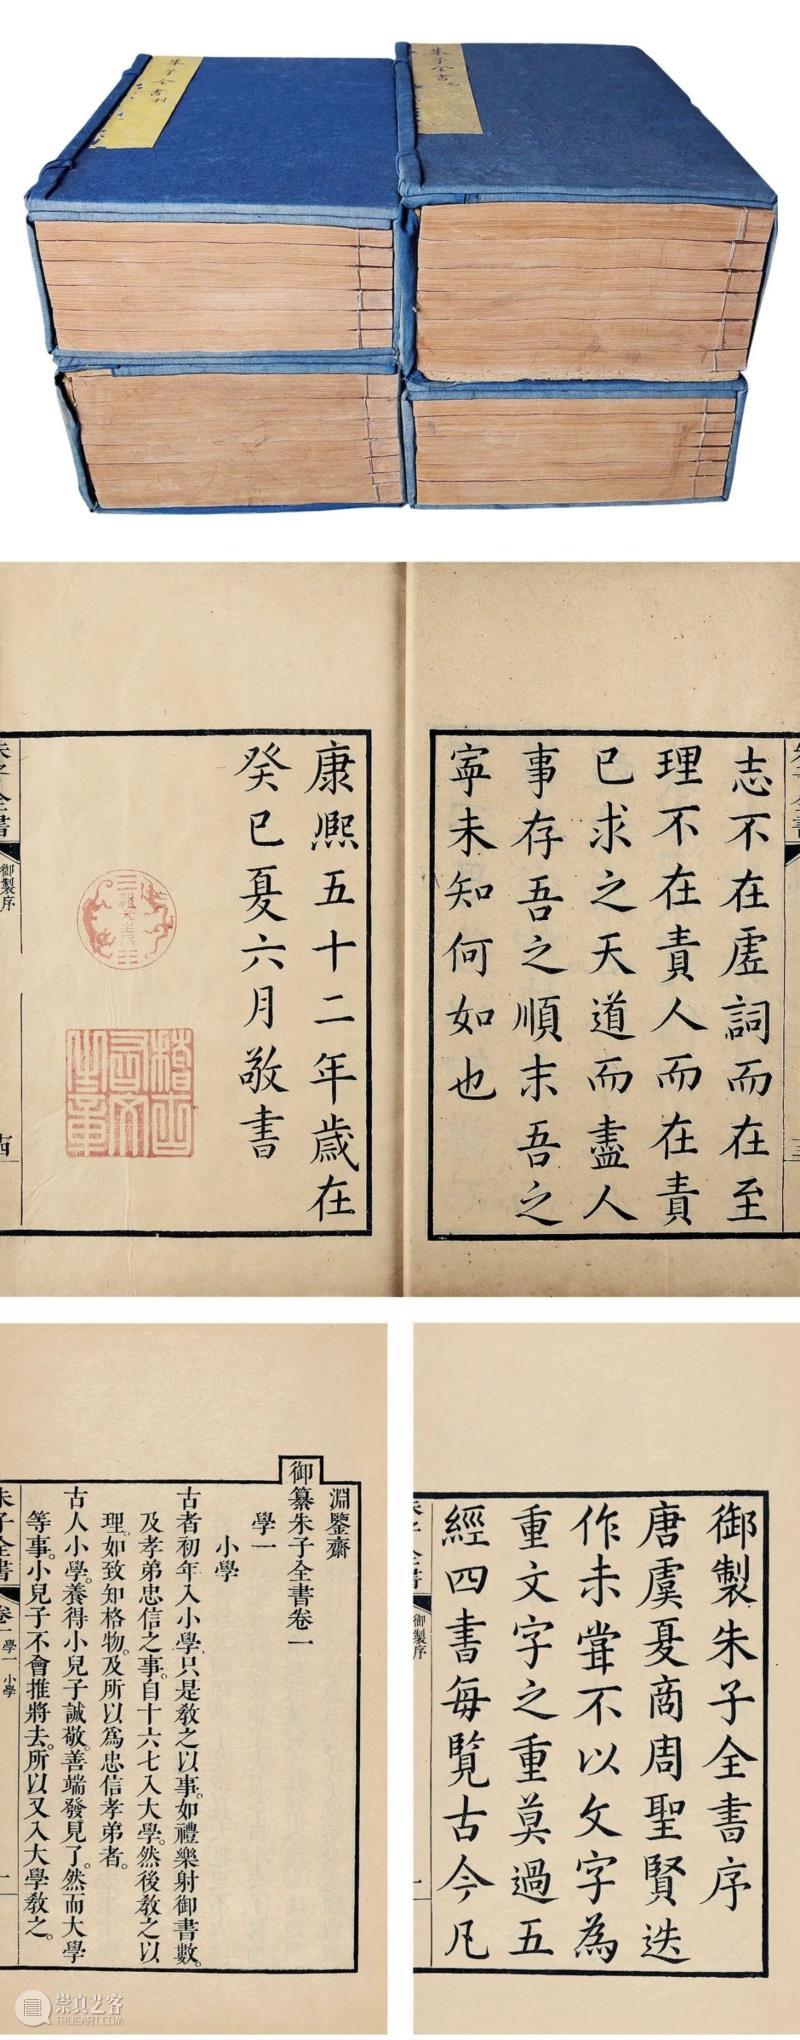 朱子全書
朱子全書
志不在虛詞而在至
理不在責人而在責
已求之天道而盡人
事存吾之順末吾之
寧未知何如也
康熙五十二年歲在
癸巳夏六月敬書
稽古右文之章
朱子全書
御製序
十四
御製朱子全書序
唐虞夏商周聖賢迭
作未甞不以文字為
重文字之重莫過五
經四書每覽古今凡
御製序
一
淵鑒齋
御纂朱子全書卷一
學一
小學
古者初年入小學只是教之以事如禮樂射御書數
及孝弟忠信之事。自十六七入大學。然後教之以
理。如致知格物。及所以為忠信孝弟者。
古人小學。養得小兒子誠敬。善端發見了。然而大學
等事。小兒子不會推將去。所以又入大學教之。
朱子全書
卷一
學一 小學
一
崇真艺客
TRUEART.COM